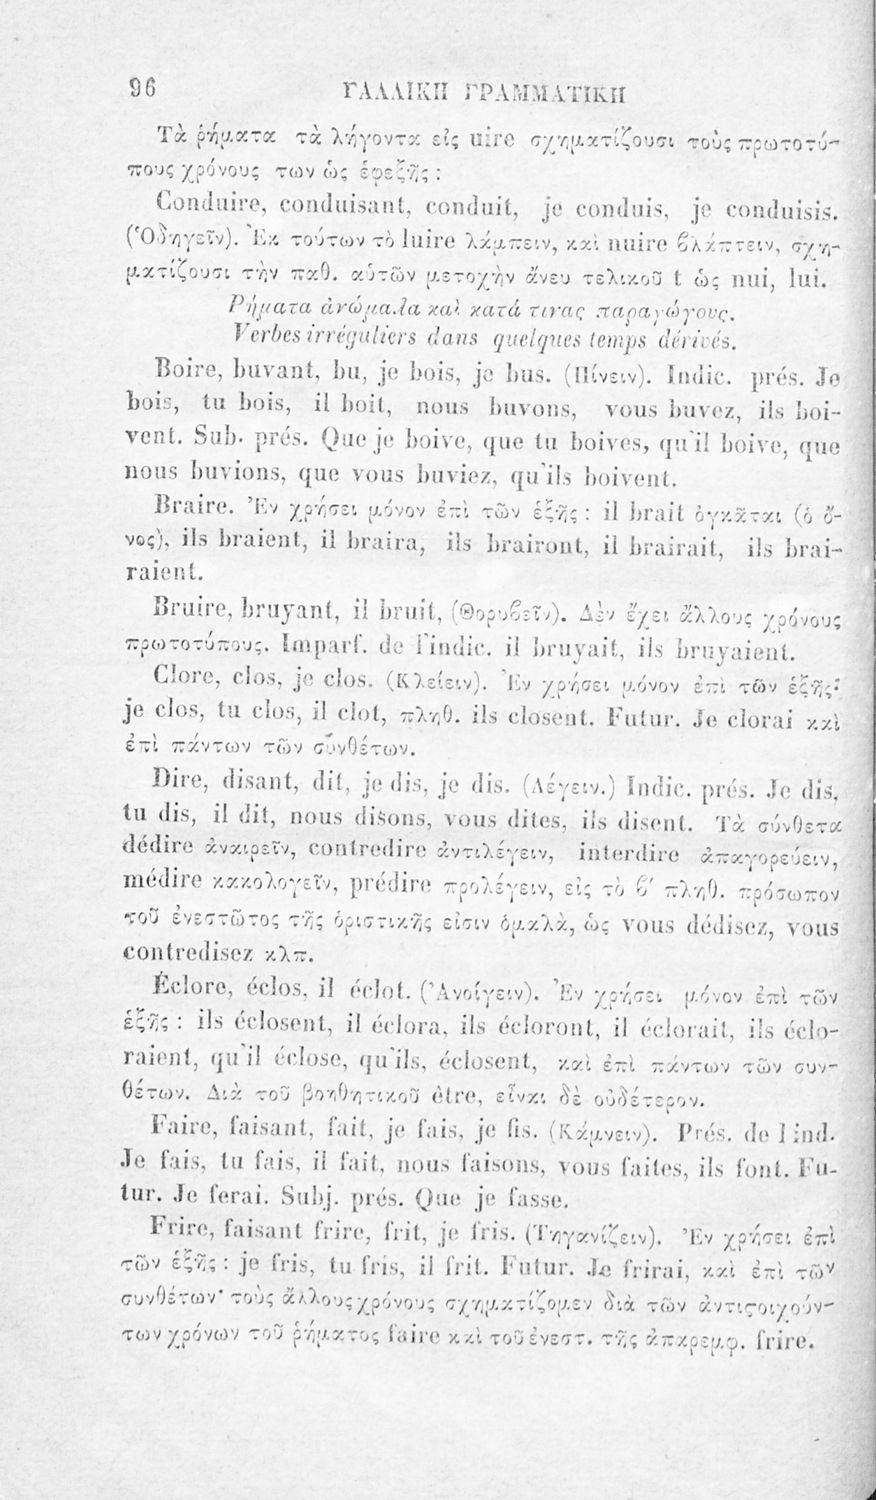 96
ΓΑΛΛΙΚΗ ΓΡΑΜΜΑΤΙΚΗ
Τὰ ῥήματα τὰ λήγοντα εἰς uire σχηματίζουσι τοὺς πρωτοτύ-
πους χρόνους των ὡς ἑφεξῆς :
Conduire, conduisant, conduit, je conduis, je conduisis.
(Ὁδηγεῖν). Ἐκ τούτων τὸ luire λάμπειν, καὶ nuire ϐλάπτειν, σχη-
ματίζουσι τὴν παθ. αὑτῶν μετοχὴν ἄνευ τελικοῦ t ὡς nui, lui.
Ῥήματα ἀνώμαλα καὶ κατά τινας παραγώγους.
Verbes irréguliers dans quelques temps dérivés.
Boire, buvant, bu, je bois, je bus. (Πίνειν). Indic. prés. Je
bois, tu bois, il boit, nous buvons, vous buvez, ils boi-
vent. Sub. prés. Que je boive, que tu boives, qu'il boive, que
nous buvions, que vous buviez, qu'ils boivent.
Braire. Ἐν χρήσει μόνον ἐπὶ τῶν ἑξῆς : il brait ὀγκᾶται (ὁ ὄ-
νος), ils braient, il braira, ils brairont, il brairait, ils brai-
raient.
Bruire, bruyant, il bruit, (Θορυϐεῖν). Δὲν ἔχει ἄλλους χρόνους
πρωτοτύπους. Imparf. de l'indic. il bruyait, ils bruyaient.
Clore, clos, je clos. (Κλείειν). Ἐν χρήσει μόνον ἐπὶ τῶν ἑξῆς:
je clos, tu clos, il clot, πληθ. ils closent. Futur. Je clorai καὶ
ἐπὶ πάντων τῶν συνθέτων.
Dire, disant, dit, je dis, je dis. (Λέγειν.) Indic. prés. Je dis,
tu dis, il dit, nous disons, vous dites, ils disent. Τὰ σύνθετα
dédire ἀναιρεῖν, contredire ἀντιλέγειν, interdire ἀπαγορεύειν,
médire κακολογεῖν, prédire προλέγειν, εἰς τὸ ϐ′ πληθ. πρόσωπον
τοῦ ἐνεστῶτος τῆς ὁριστικῆς εἰσιν ὁμαλὰ, ὡς vous dédisez, vous
contredisez κλπ.
Éclore, éclos, il éclot. (Ἀνοίγειν). Ἐν χρήσει μόνον ἐπὶ τῶν
ἑξῆς : ils éclosent, il éclora, ils écloront, il éclorait, ils éclo-
raient, qu'il éclose, qu'ils, éclosent, καὶ ἐπὶ πάντων τῶν συν-
θέτων. Διὰ τοῦ βοηθητικοῦ être, εἶναι δὲ οὐδέτερον.
Faire, faisant, fait, je fais, je fis. (Κάμνειν). Prés. de l ind.
Je fais, tu fais, il fait, nous faisons, vous faites, ils font. Fu-
tur. Je ferai. Subj. prés. Que je fasse.
Frire, faisant frire, frit, je fris. (Τηγανίζειν). Ἐν χρήσει ἐπὶ
τῶν ἑξῆς : je fris, tu fris, il frit. Futur. Je frirai, καὶ ἐπὶ τῶν
συνθέτων· τοὺς ἄλλους χρόνους σχηματίζομεν διὰ τῶν ἀντιϛοιχούν-
των χρόνων τοῦ ῥήματος faire καὶ τοῦ ἐνεστ. τῆς ἀπαρεμφ. frire.